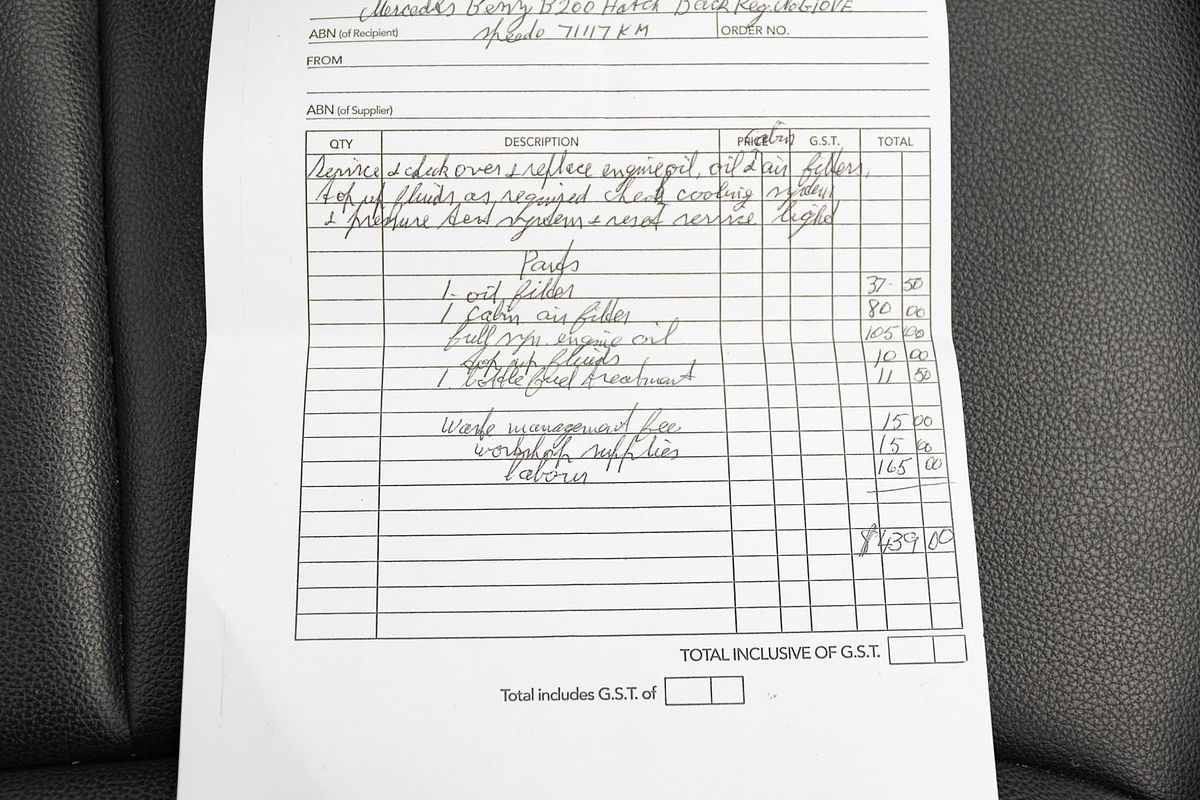 Mercedes Benz B200 Hatch Back Reg No
ABN (of Recipient) speedo 71117 KM ORDER NO.
FROM
ABN (of Supplier)
QTY DESCRIPTION PRICE G.S.T. TOTAL
cabin
Service & check over & replace engine oil, oil & air filters,
top up fluids as required check cooling system
& pressure test system & reset service light
Parts
1- oil filter 37-50
1 cabin air filter 80 00
full syn. engine oil 105 00
top up fluids 10 00
1. bottle fuel treatment 11 50
Waste management fee 15 00
workshop supplies 15 00
labour 165 00
$439 00
TOTAL INCLUSIVE OF G.S.T.
Total includes G.S.T. of